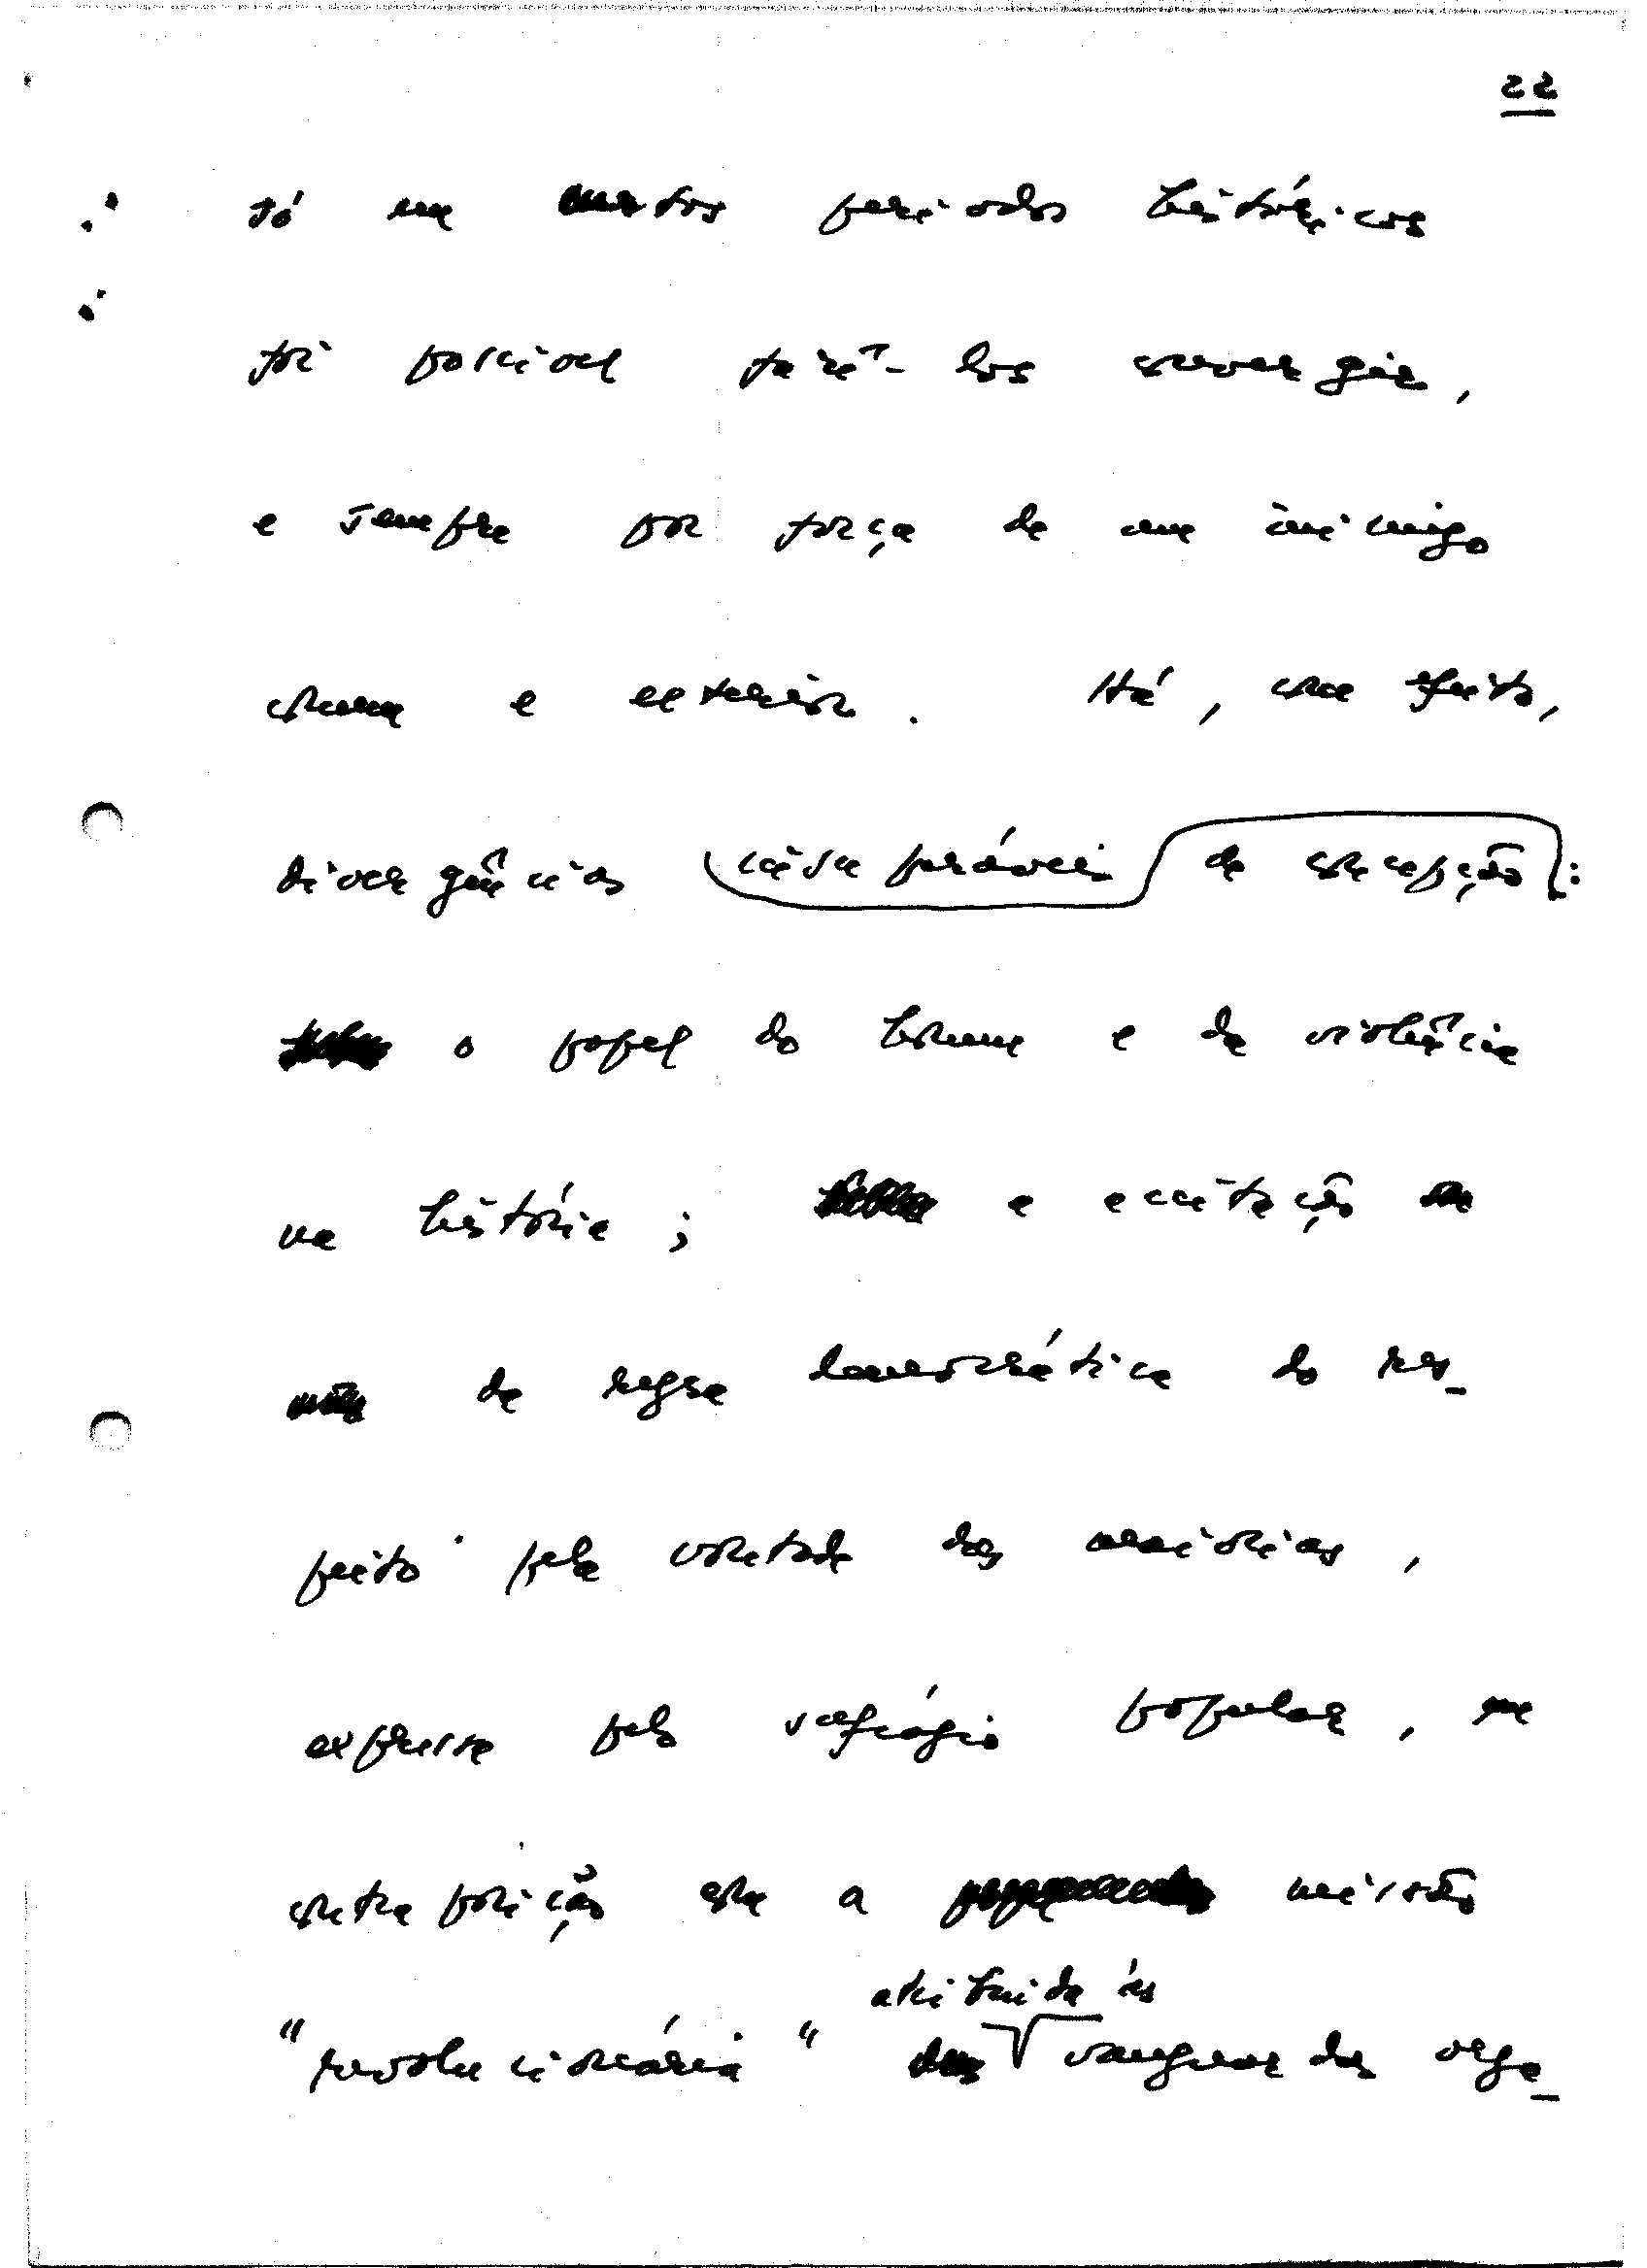 22
só em curtos períodos históricos
foi possivel fazê-los convergir,
e sempre por força de um inimigo
comum e exterior. Há, com efeito,
divergências insuperáveis de concepção:
o papel do homem e da violência
na história; a aceitação
da regra democrática do res-
peito pela vontade das maiorias,
expressa pelo sufrágio popular, em
contraposição com a missão
atribuida às
"revolucionária" vanguardas orga-